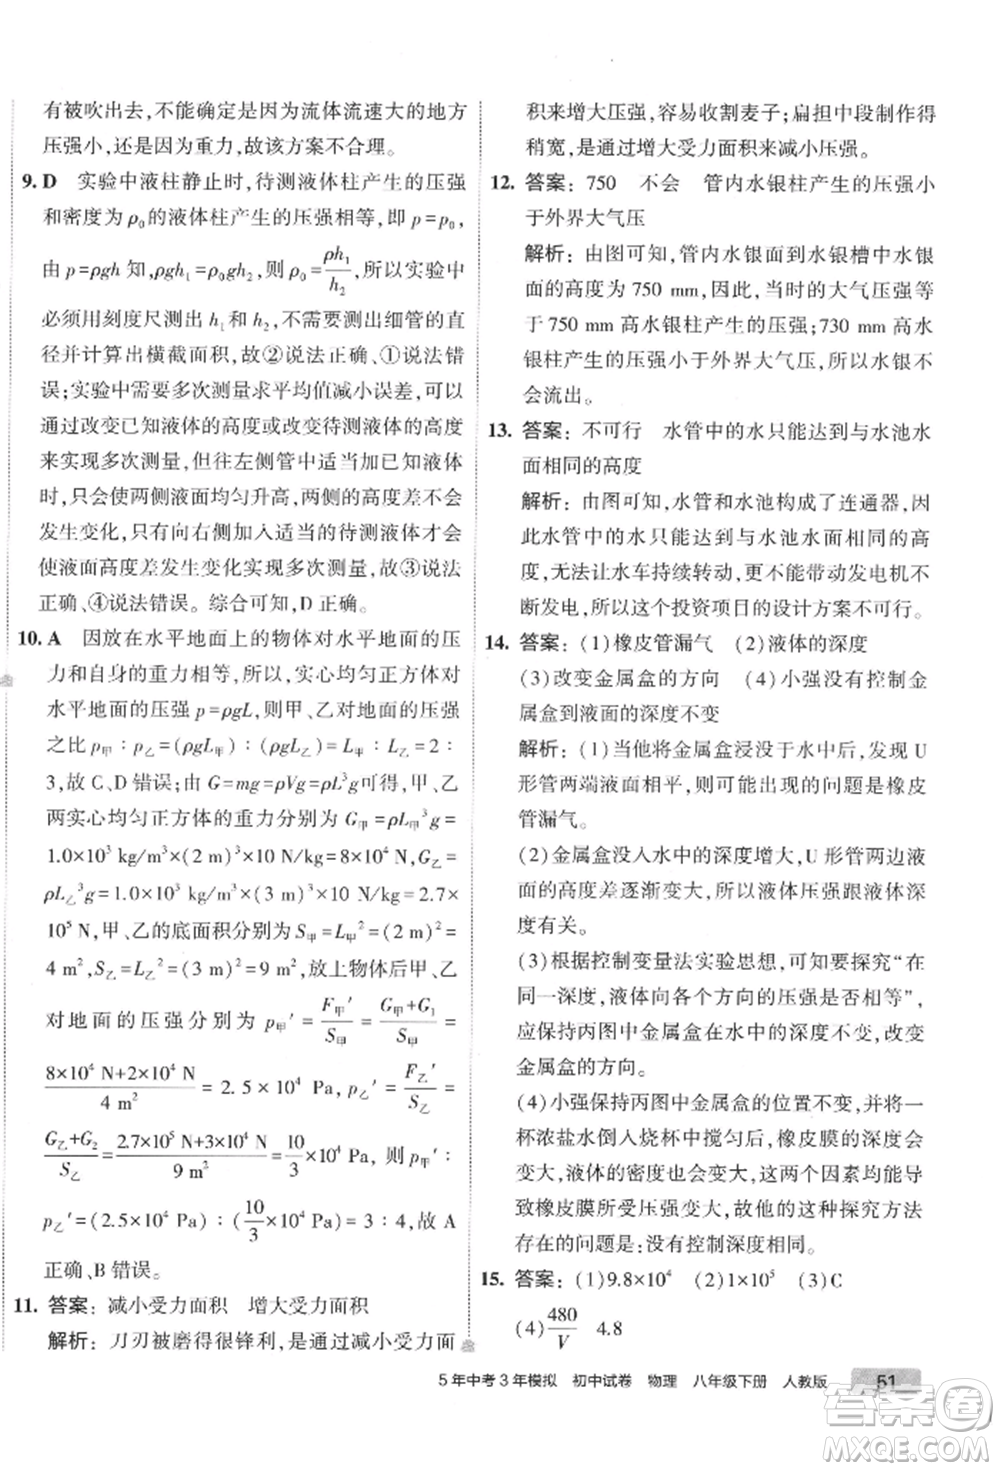 有被吹出去,不能确定是因为流体流速大的地方
压强小,还是因为重力,故该方案不合理。
9. D 实验中液柱静止时,待测液体柱产生的压强
和密度为ρ₀的液体柱产生的压强相等,即p=p₀,
由p=ρgh知,ρgh₁=ρ₀gh₂,则ρ₀=ρh₁/h₂,所以实验中
必须用刻度尺测出h₁和h₂,不需要测出细管的直
径并计算出横截面积,故②说法正确、①说法错
误;实验中需要多次测量求平均值减小误差,可以
通过改变已知液体的高度或改变待测液体的高度
来实现多次测量,但往左侧管中适当加入液体时,
只会使两侧液面均匀升高,两侧的高度差不会
发生变化,只有向右侧加入适当的待测液体时,才
会使液面高度差发生变化实现多次测量,故③说法
正确、④说法错误。综合可知,D正确。
10. A 因放在水平地面上的物体对水平地面的压
力和自身的重力相等,所以,实心均匀正方体对
水平地面的压强p=ρgL,则甲、乙对地面的压强
之比p甲:p乙=(ρgL甲):(ρgL乙)=L甲:L乙=2:
3,故C、D错误;由G=mg=ρVg=ρL³g可得,甲、乙
两实心均匀正方体的重力分别为G甲=ρL甲³g=
1.0×10³ kg/m³×(2 m)³×10 N/kg=8×10⁴ N,G乙=
ρL乙³g=1.0×10³ kg/m³×(3 m)³×10 N/kg=2.7×
10⁵ N,甲、乙的底面积分别为S甲=L甲²=(2 m)²=
4 m²,S乙=L乙²=(3 m)²=9 m²,放上物体后甲、乙
对地面的压强分别为p甲′=F甲′/S甲=(G甲+G₁)/S甲=
(8×10⁴ N+2×10⁴ N)/4 m²=2.5×10⁴ Pa,p乙′=F乙′/S乙=
(G乙+G₂)/S乙=(2.7×10⁵ N+3×10⁴ N)/9 m²=10/3×10⁴ Pa,则p甲′:
p乙′=(2.5×10⁴ Pa):(10/3×10⁴ Pa)=3:4,故A
正确、B错误。
11. 答案:减小受力面积 增大受力面积
解析:刀刃被磨得很锋利,是通过减小受力面
积来增大压强,容易收割麦子;扁担中段制作得
稍宽,是通过增大受力面积来减小压强。
12. 答案:750 不会 管内水银柱产生的压强小
于外界大气压
解析:由图可知,管内水银面到水银槽中水银
面的高度为750 mm,因此,当时的大气压强等
于750 mm高水银柱产生的压强;730 mm高水
银柱产生的压强小于外界大气压,所以水银不
会流出。
13. 答案:不可行 水管中的水只能达到与水池水
面相同的高度
解析:由图可知,水管和水池构成了连通器,因
此水管中的水只能达到与水池水面相同的高
度,无法让水车持续转动,更不能带动发电机不
断发电,所以这个投资项目的设计方案不可行。
14. 答案:(1)橡皮管漏气 (2)液体的深度
(3)改变金属盒的方向 (4)小强没有控制金
属盒到液面的深度不变
解析:(1)当他将金属盒浸没于水中后,发现U
形管两端液面相平,则可能出现的问题是橡皮
管漏气。
(2)金属盒没入水中的深度增大,U形管两边液
面的高度差逐渐变大,所以液体压强跟液体深
度有关。
(3)根据控制变量法实验思想,可知要探究“在
同一深度,液体向各个方向的压强是否相等”,
应保持丙图中金属盒在水中的深度不变,改变
金属盒的方向。
(4)小强保持丙图中金属盒的位置不变,并将一
杯浓盐水倒入烧杯中搅匀后,橡皮膜的深度会
变大,液体的密度也会变大,这两个因素均能导
致橡皮膜所受压强变大,故他的这种探究方法
存在的问题是:没有控制深度相同。
15. 答案:(1)9.8×10⁴ (2)1×10⁵ (3)C
(4)480/V 4.8
5年中考3年模拟 初中试卷 物理 八年级下册 人教版 51
答案卷
MXQE.COM